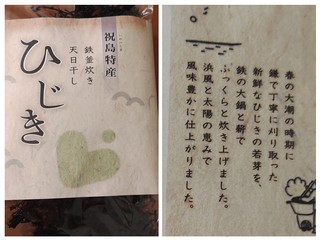 祝島特産
鉄釜炊き
天日干し
ひじき
春の大潮の時期に
鎌で丁寧に刈り取った
新鮮なひじきの若芽を、
鉄の大鍋と薪で
ふっくらと炊き上げました。
浜風と太陽の恵みで
風味豊かに仕上がりました。